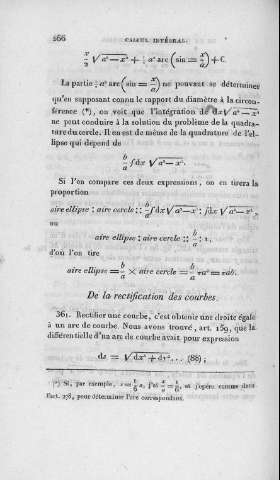 266 CALCUL INTÉGRAL.
x/2 √a²—x² + ½ a² arc (sin = x/a) + C.
La partie ½ a² arc (sin = x/a) ne pouvant se déterminer
qu'en supposant connu le rapport du diamètre à la circon-
férence (*), on voit que l'intégration de dx√a²—x²
ne peut conduire à la solution du problème de la quadra-
ture du cercle. Il en est de même de la quadrature de l'el-
lipse qui dépend de
b/a ∫dx √a²—x².
Si l'on compare ces deux expressions, on en tirera la
proportion
aire ellipse : aire cercle :: b/a ∫dx √a²—x² : ∫dx √a²—x²,
ou
aire ellipse : aire cercle :: b/a : 1,
d'où l'on tire
aire ellipse = b/a × aire cercle = b/a πa² = πab.
De la rectification des courbes.
361. Rectifier une courbe, c'est obtenir une droite égale
à un arc de courbe. Nous avons trouvé, art. 159, que la
différentielle d'un arc de courbe avait pour expression
ds = √dx² + dy²... (88);
(*) Si, par exemple, x = 1/6 a, j'ai x/a = 1/6, et j'opère comme dans
l'art. 278, pour déterminer l'arc correspondant.